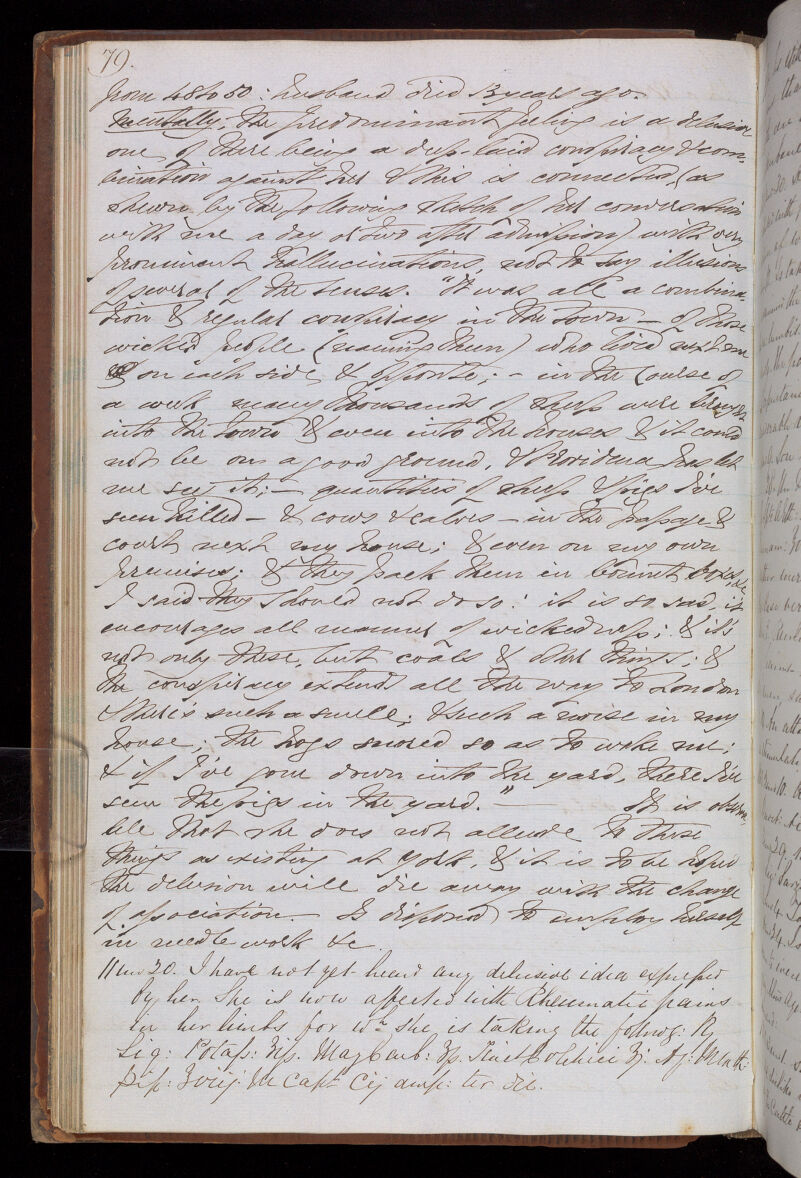 79.
from 48 to 50: husband died 13 years ago.
Mentally, the predominant feeling is a delusive
one, of there being a deep-laid conspiracy & com-
bination against her & this is connected, (as
shewn by the following sketch of her conversation
with me a day or two after admission) with very
prominent hallucinations, not to say illusions
of several of the senses. "It was all a combina-
tion & regular conspiracy in the town – of those
wicked people (naming them) who lived next me
on each side, & opposite; – in the course of
a week many thousands of sheep were brought
into the town & even into the houses & it could
not be on a good ground, & Providence has let
me see it; – quantities of sheep & pigs I've
seen killed – & cows & calves – in the passage &
court next my house; & even on my own
premises; & they pack them in boxes, &c
I said they should not do so: it is so sad, it
encourages all manner of wickedness; & it's
not only these, but coals & other things; &
the conspiracy extends all the way to London
& there's such a smell; & such a noise in my
house; the hogs snored so as to wake me;
& if I've gone down into the yard, there I've
seen the pigs in the yard." — It is observa-
ble that she does not allude to these
things as existing at York, & it is to be hoped
the delusion will die away with the change
of association. – Is disposed to employ herself
in needle work &c
11 mo 30. I have not yet heard any delusive idea expressed
by her. She is now affected with Rheumatic pains
in her limbs for wh. she is taking the followg: R
Liq: Potass: ʒiſs. Mag Carb: ʒſs. Tinct Colchici ʒj. Aq: Menth:
Pip: ʒviij. M Capt Cij amp: ter die.